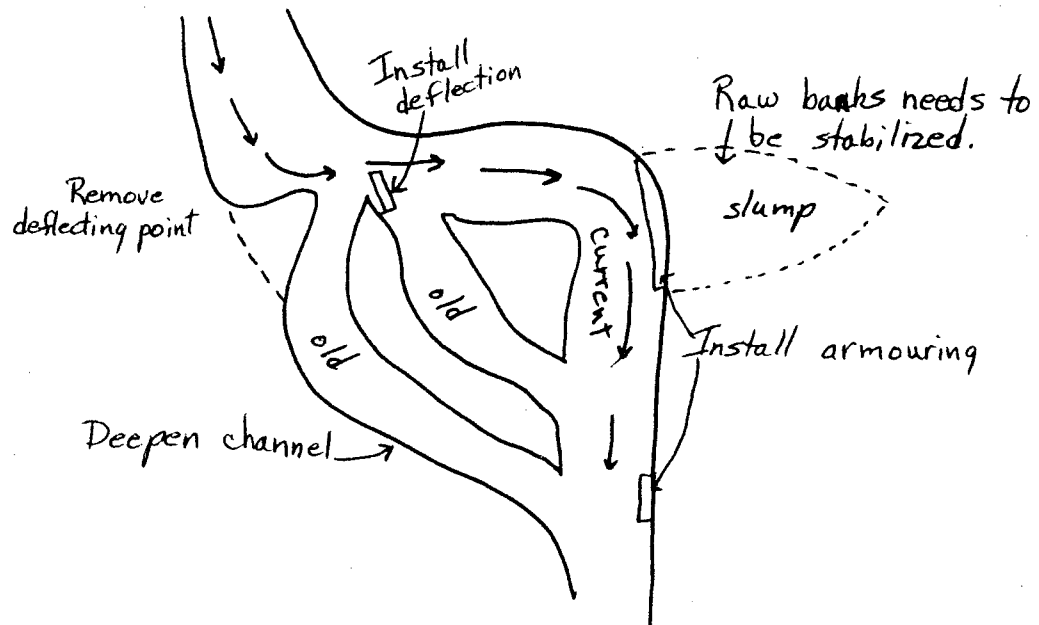 Install
deflection
Raw banks needs to
be stabilized.
Remove
deflecting point
slump
current
old
old
Install armouring
Deepen channel